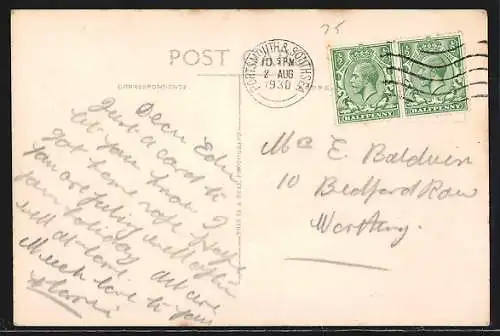 25
POST
CORRESPONDENCE
PORTSMOUTH & SOUTHSEA
10. PM
2 AUG
1930
HALFPENNY
HALFPENNY
Dear Edie
Just a card to
let you know I
got home safe. Hope
you are feeling well after
your holiday. All are
well at home.
Much love to you
Mrs E. Baldwin
10 Bedford Row
Worthing.